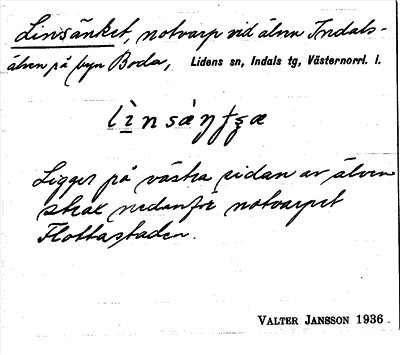 Linsänket, notvarp vid älven Indals-
älven på byn Boda, Lidens sn, Indals tg, Västernorrl. l.
Ligger på västra sidan av älven
strax nedanför notvarpet
Flottastaden.
VALTER JANSSON 1936.